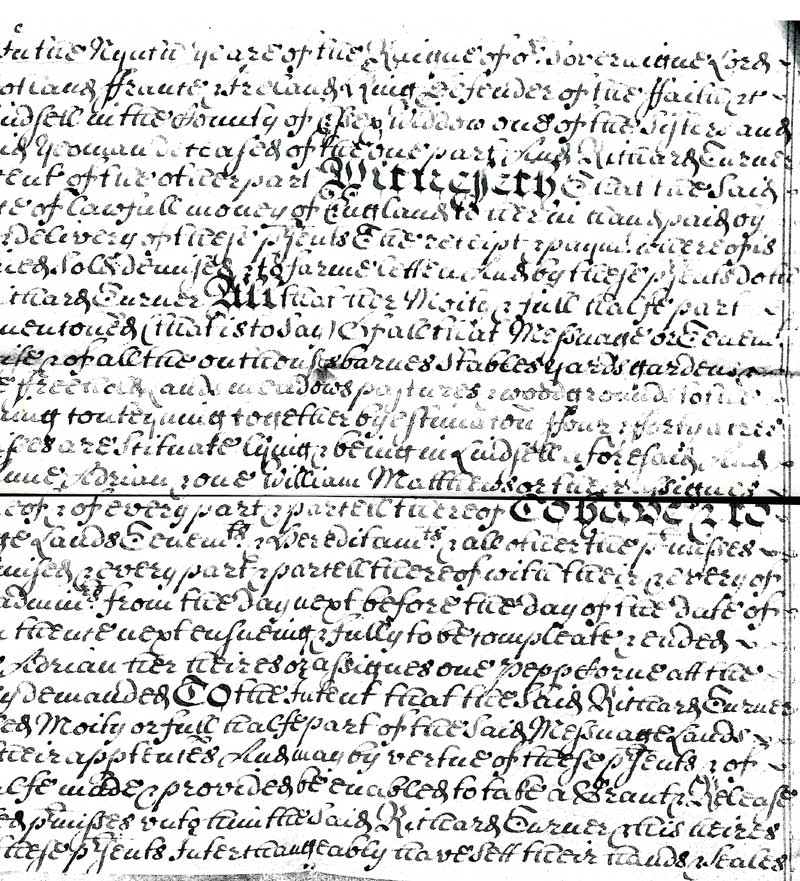 In the Nynth yeare of the Raigne of or. Soveraigne Lord
otland ffrance & Ireland King Defender of the ffaith &c
indsell in the County of Essex Widdow one of the Sisters and
id Yeoman deceased of the one part And Richard Turner
ent of the other part Witnesseth That the said
e of lawfull money of England to her in hand paid by
delivery of these p'sents The receipt & paymt. whereof is
ed Sold Demised & to farme letten And by these p'sents doth
ichard Turner All that her Moity & full halfe part
mentoned (that is to say) Of all that Messuage or Tenemt
& of all the outhouses barnes Stables yards gardens
e freehold Lands meadows pastures & woodgrounds to the
ing conteyning together by estimaton ffour & forty acres
sses are Scituate lying & being in Lindsell aforesaid And
Adrian & one William Matthews or their Assignes
eof & of every part & parcell thereof To have & to
ge Lands Tenemts & Hereditamts & all other the p'misses
mised & every part & parcell thereof with their & every of
admin'rs from the Day next before the day of the Date of
thence next ensueing & fully to be compleate & ended
Adrian her heires or assignes one pepp corne att the
y demanded TO the Intent that the said Richard Turner
ed Moity or full halfe part of the said Messuage Lands
their apptences And may by vertue of these p'sents & of
alfe made & provided be enabled to take a Grant & Release
ed p'misses unto him the said Richard Turner & his heires
these p'sents Interchangeably have sett their hands & Seales